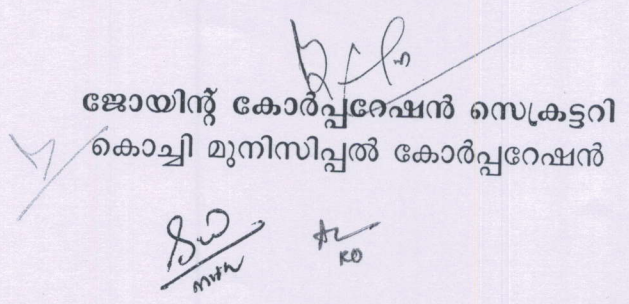 ജോയിന്റ് കോർപ്പറേഷൻ സെക്രട്ടറി
കൊച്ചി മുനിസിപ്പൽ കോർപ്പറേഷൻ